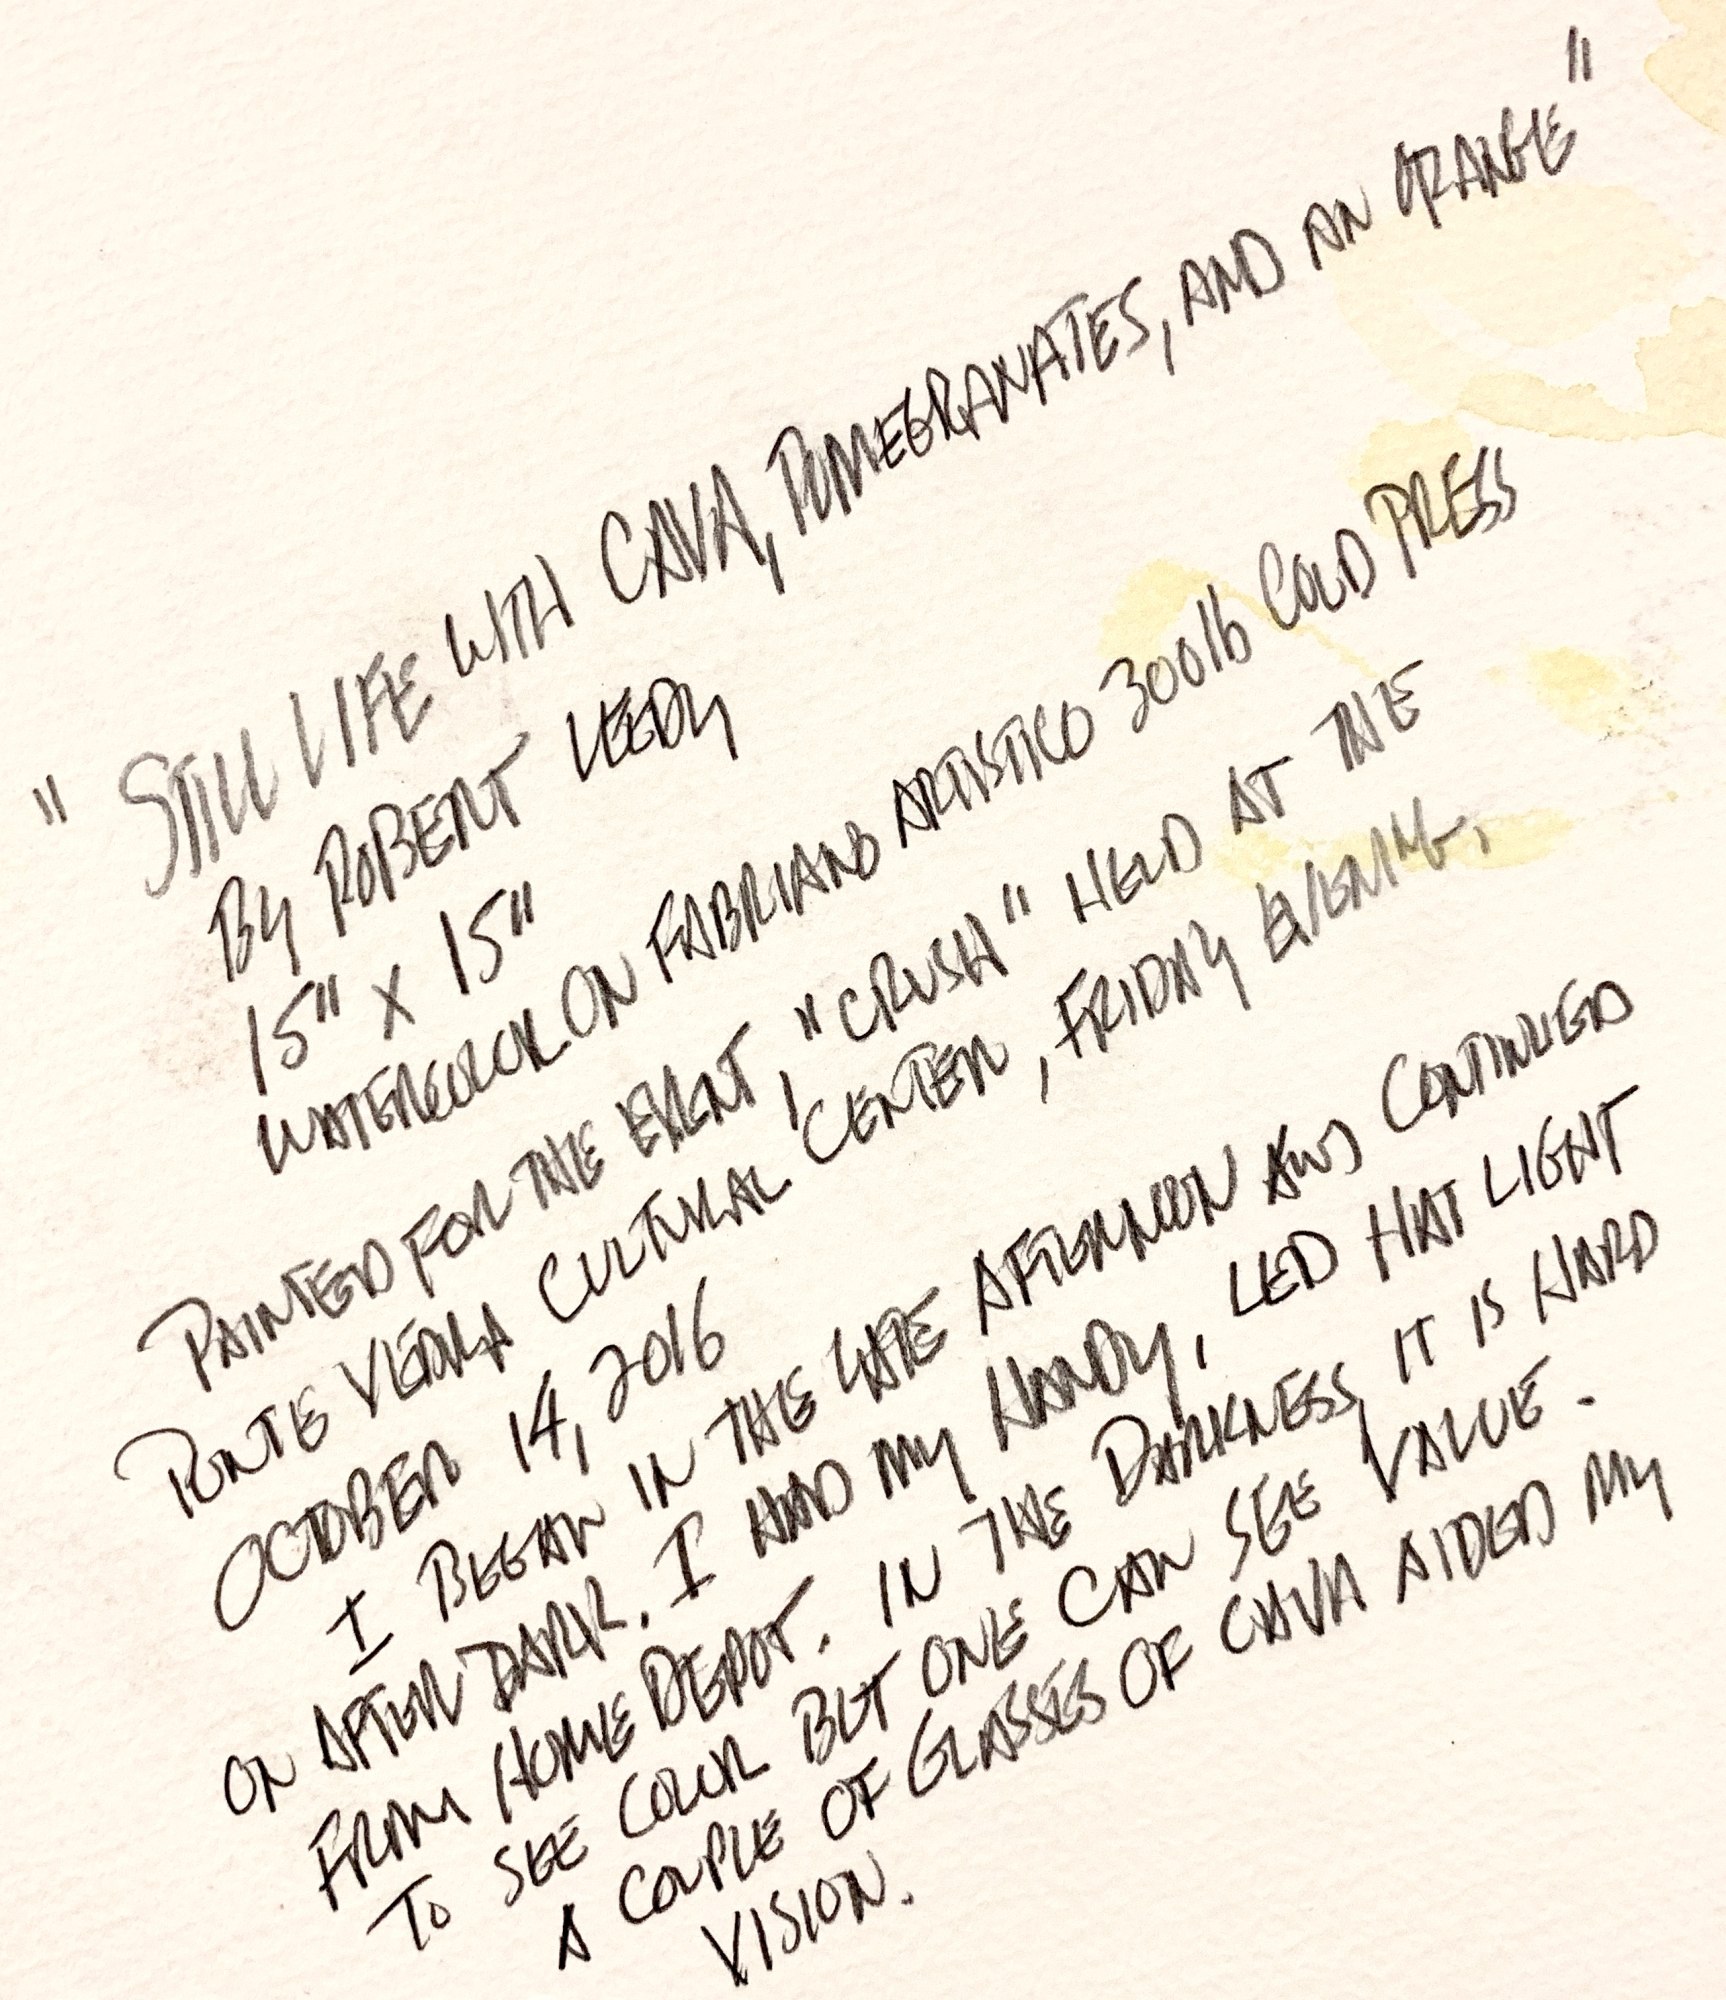 "STILL LIFE WITH CAVA, POMEGRANATES, AND AN ORANGE"
BY ROBERT LEEDY
15" X 15"
WATERCOLOR ON FABRIANO ARTISTICO 300lb COLD PRESS
PAINTED FOR THE EVENT, "CRUSH" HELD AT THE
PONTE VEDRA CULTURAL CENTER, FRIDAY EVENING,
OCTOBER 14, 2016
I BEGAN IN THE LATE AFTERNOON AND CONTINUED
ON AFTER DARK. I HAD MY HANDY, LED HAT LIGHT
FROM HOME DEPOT. IN THE DARKNESS, IT IS HARD
TO SEE COLOR BUT ONE CAN SEE VALUE.
A COUPLE OF GLASSES OF CAVA AIDED MY
VISION.